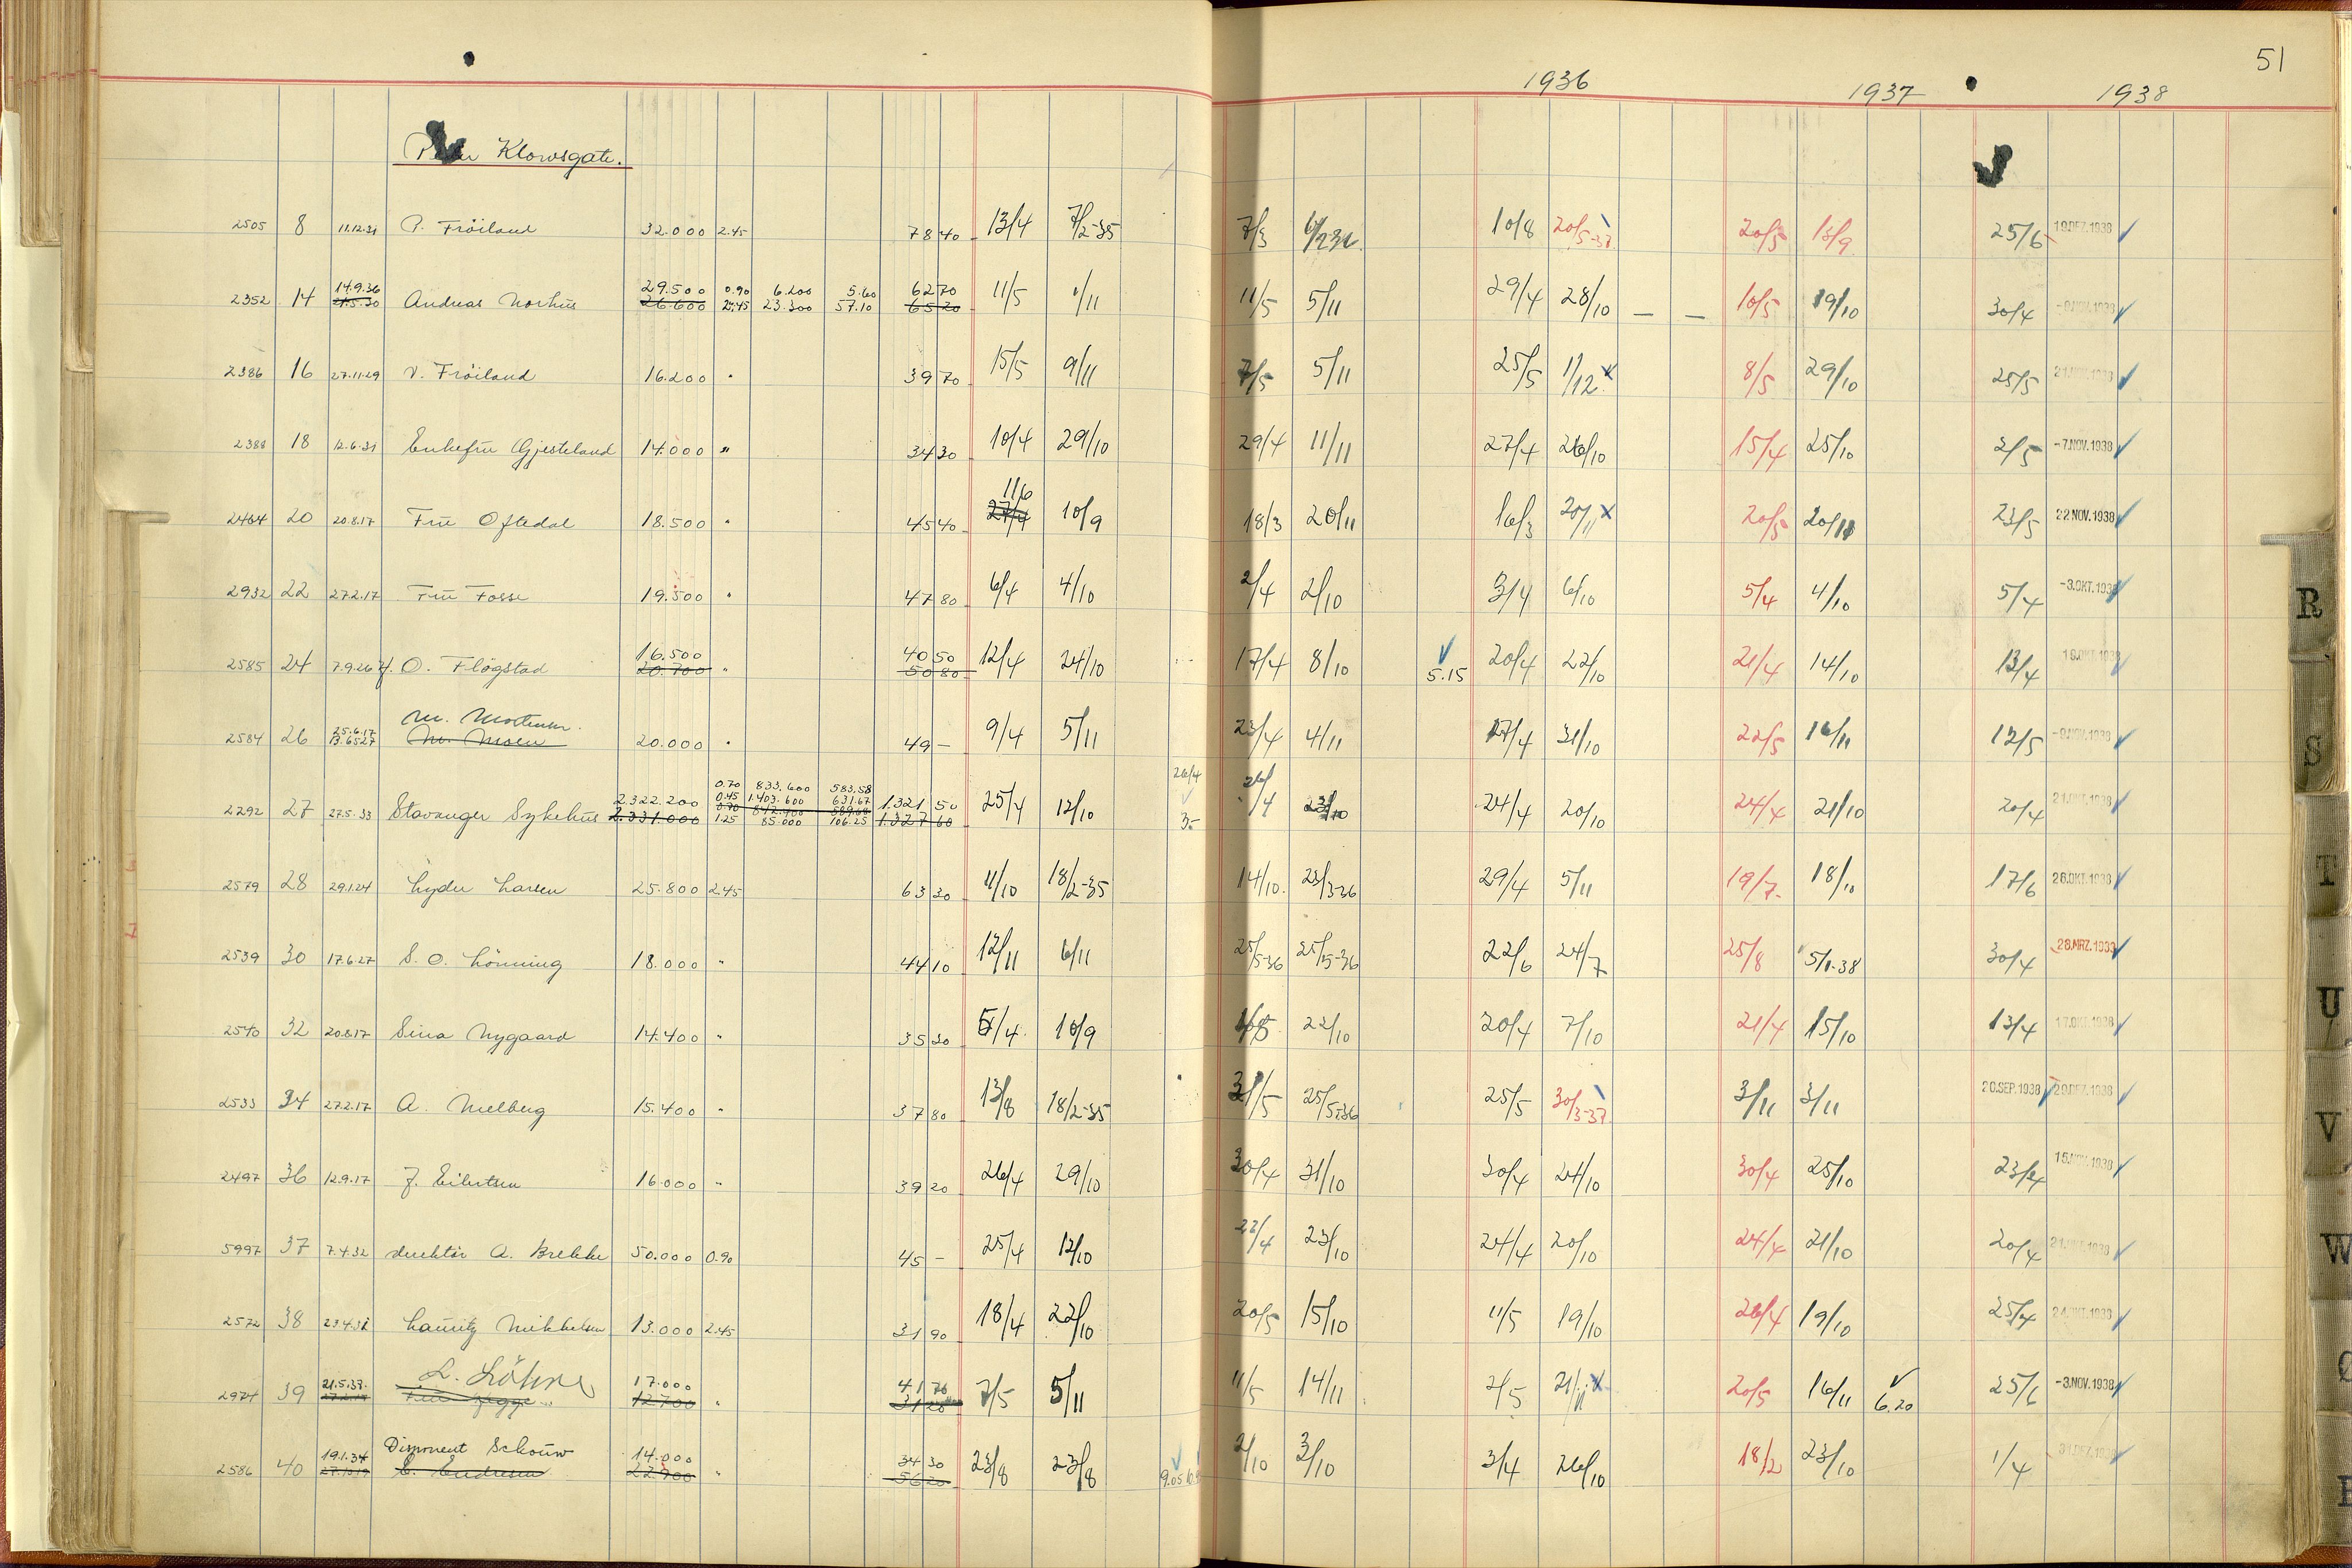 51
1936 1937 1938
Klowsgate.
2505 8 11.12.31 P. Fröiland 32.000 2.45 78 40 13/4 7/2-35 7/3 10/8 20/5-37 20/5 13/9 25/6 19.DEZ.1938
14.9.36 29.500 0.90 6.200 5.60 62 70
2352 14 Andreas Norhus 26.600 2.45 23.300 57.10 65 20 11/5 1/11 11/5 5/11 29/4 28/10 — — 10/5 19/10 30/4 -9.NOV.1938
2386 16 27.11.29 V. Fröiland 16.200 " 39 70 15/5 9/11 7/5 5/11 25/5 1/12 x 8/5 29/10 25/5 21.NOV.1938
2388 18 12.6.31 Enkefru Gjesteland 14.000 " 34 30 10/4 29/10 29/4 11/11 27/4 26/10 15/4 25/10 2/5 -7.NOV.1938
11/6
2464 20 20.8.17 Fru Oftedal 18.500 " 45 40 27/4 10/9 18/3 20/11 16/3 20/11 x 20/5 20/11 23/5 22 NOV.1938
2932 22 27.2.17 Fru Fosse 19.500 " 47 80 6/4 4/10 2/4 2/10 3/4 6/10 5/4 4/10 5/4 -3.OKT.1938
16.500 40 50
2585 24 7.9.26 O. Flögstad 20.700 " 50 80 12/4 24/10 17/4 8/10 5.15 20/4 22/10 21/4 14/10 13/4 19.OKT.1938
25.6.17 M. Mortensen.
2584 26 M. Moen 20.000 " 49 — 9/4 5/11 23/4 4/11 27/4 31/10 22/5 16/11 12/5 -9.NOV.1938
0.70 833.600 583.58 26/4
2.322.200 0.45 1.403.600 631.67 1.321 50
2292 27 27.5.33 Stavanger Sykehus 2.331.000 0.70 842.400 589.68 1.327 60 25/4 12/10 26/4 23/10 24/4 20/10 24/4 21/10 20/4 21.OKT.1938
1.25 85.000 106.25 3.-
2579 28 29.1.24 Lyder Larsen 25.800 2.45 63 30 11/10 18/2-35 14/10. 23/3-36 29/4 5/11 19/7. 18/10 17/6 26.OKT.1938
2539 30 17.6.27 S. O. Lönning 18.000 " 44 10 12/11 6/11 25/5-36 25/5-36 22/6 24/7 25/8 5/1-38 30/4 28.MRZ.1939
2540 32 20.8.17 Sina Nygaard 14.400 " 35 30 5/4 10/9 22/10 20/4 7/10 21/4 15/10 13/4 17.OKT.1938
2533 34 27.2.17 A. Melberg 15.400 " 37 80 13/8 18/2-35 31/5 25/5-36 25/5 30/3-37 3/11 3/11 20.SEP.1938 20.DEZ.1938
2497 36 12.9.17 J. Eilertsen 16.000 " 39 20 26/4 29/10 30/4 31/10 30/4 24/10 30/4 25/10 15.NOV.1938
5997 37 7.4.32 direktör A. Brekke 50.000 0.90 45 — 25/4 12/10 23/10 24/4 20/10 24/4 21/10 20/4 21.OKT.1938
2572 38 Lauritz Mikkelsen 13.000 2.45 31 90 18/4 22/10 20/5 15/10 11/5 19/10 26/4 19/10 25/4 24.OKT.1938
21.5.37. L. Löhre 17.000 41 70
2974 39 Fru 12.700 " 7/5 5/11 11/5 14/11 2/5 21/11 x 20/5 16/11 6.20 25/6 -3.NOV.1938
19.1.34 Disponent Schouw 14.000 34 30
2586 40 27.10.19 E. Endresen 22.900 " 56 20 23/8 23/8 9.05 2/10 3/10 3/4 26/10 18/2 23/10 1/4
R
S
T
U
V
W